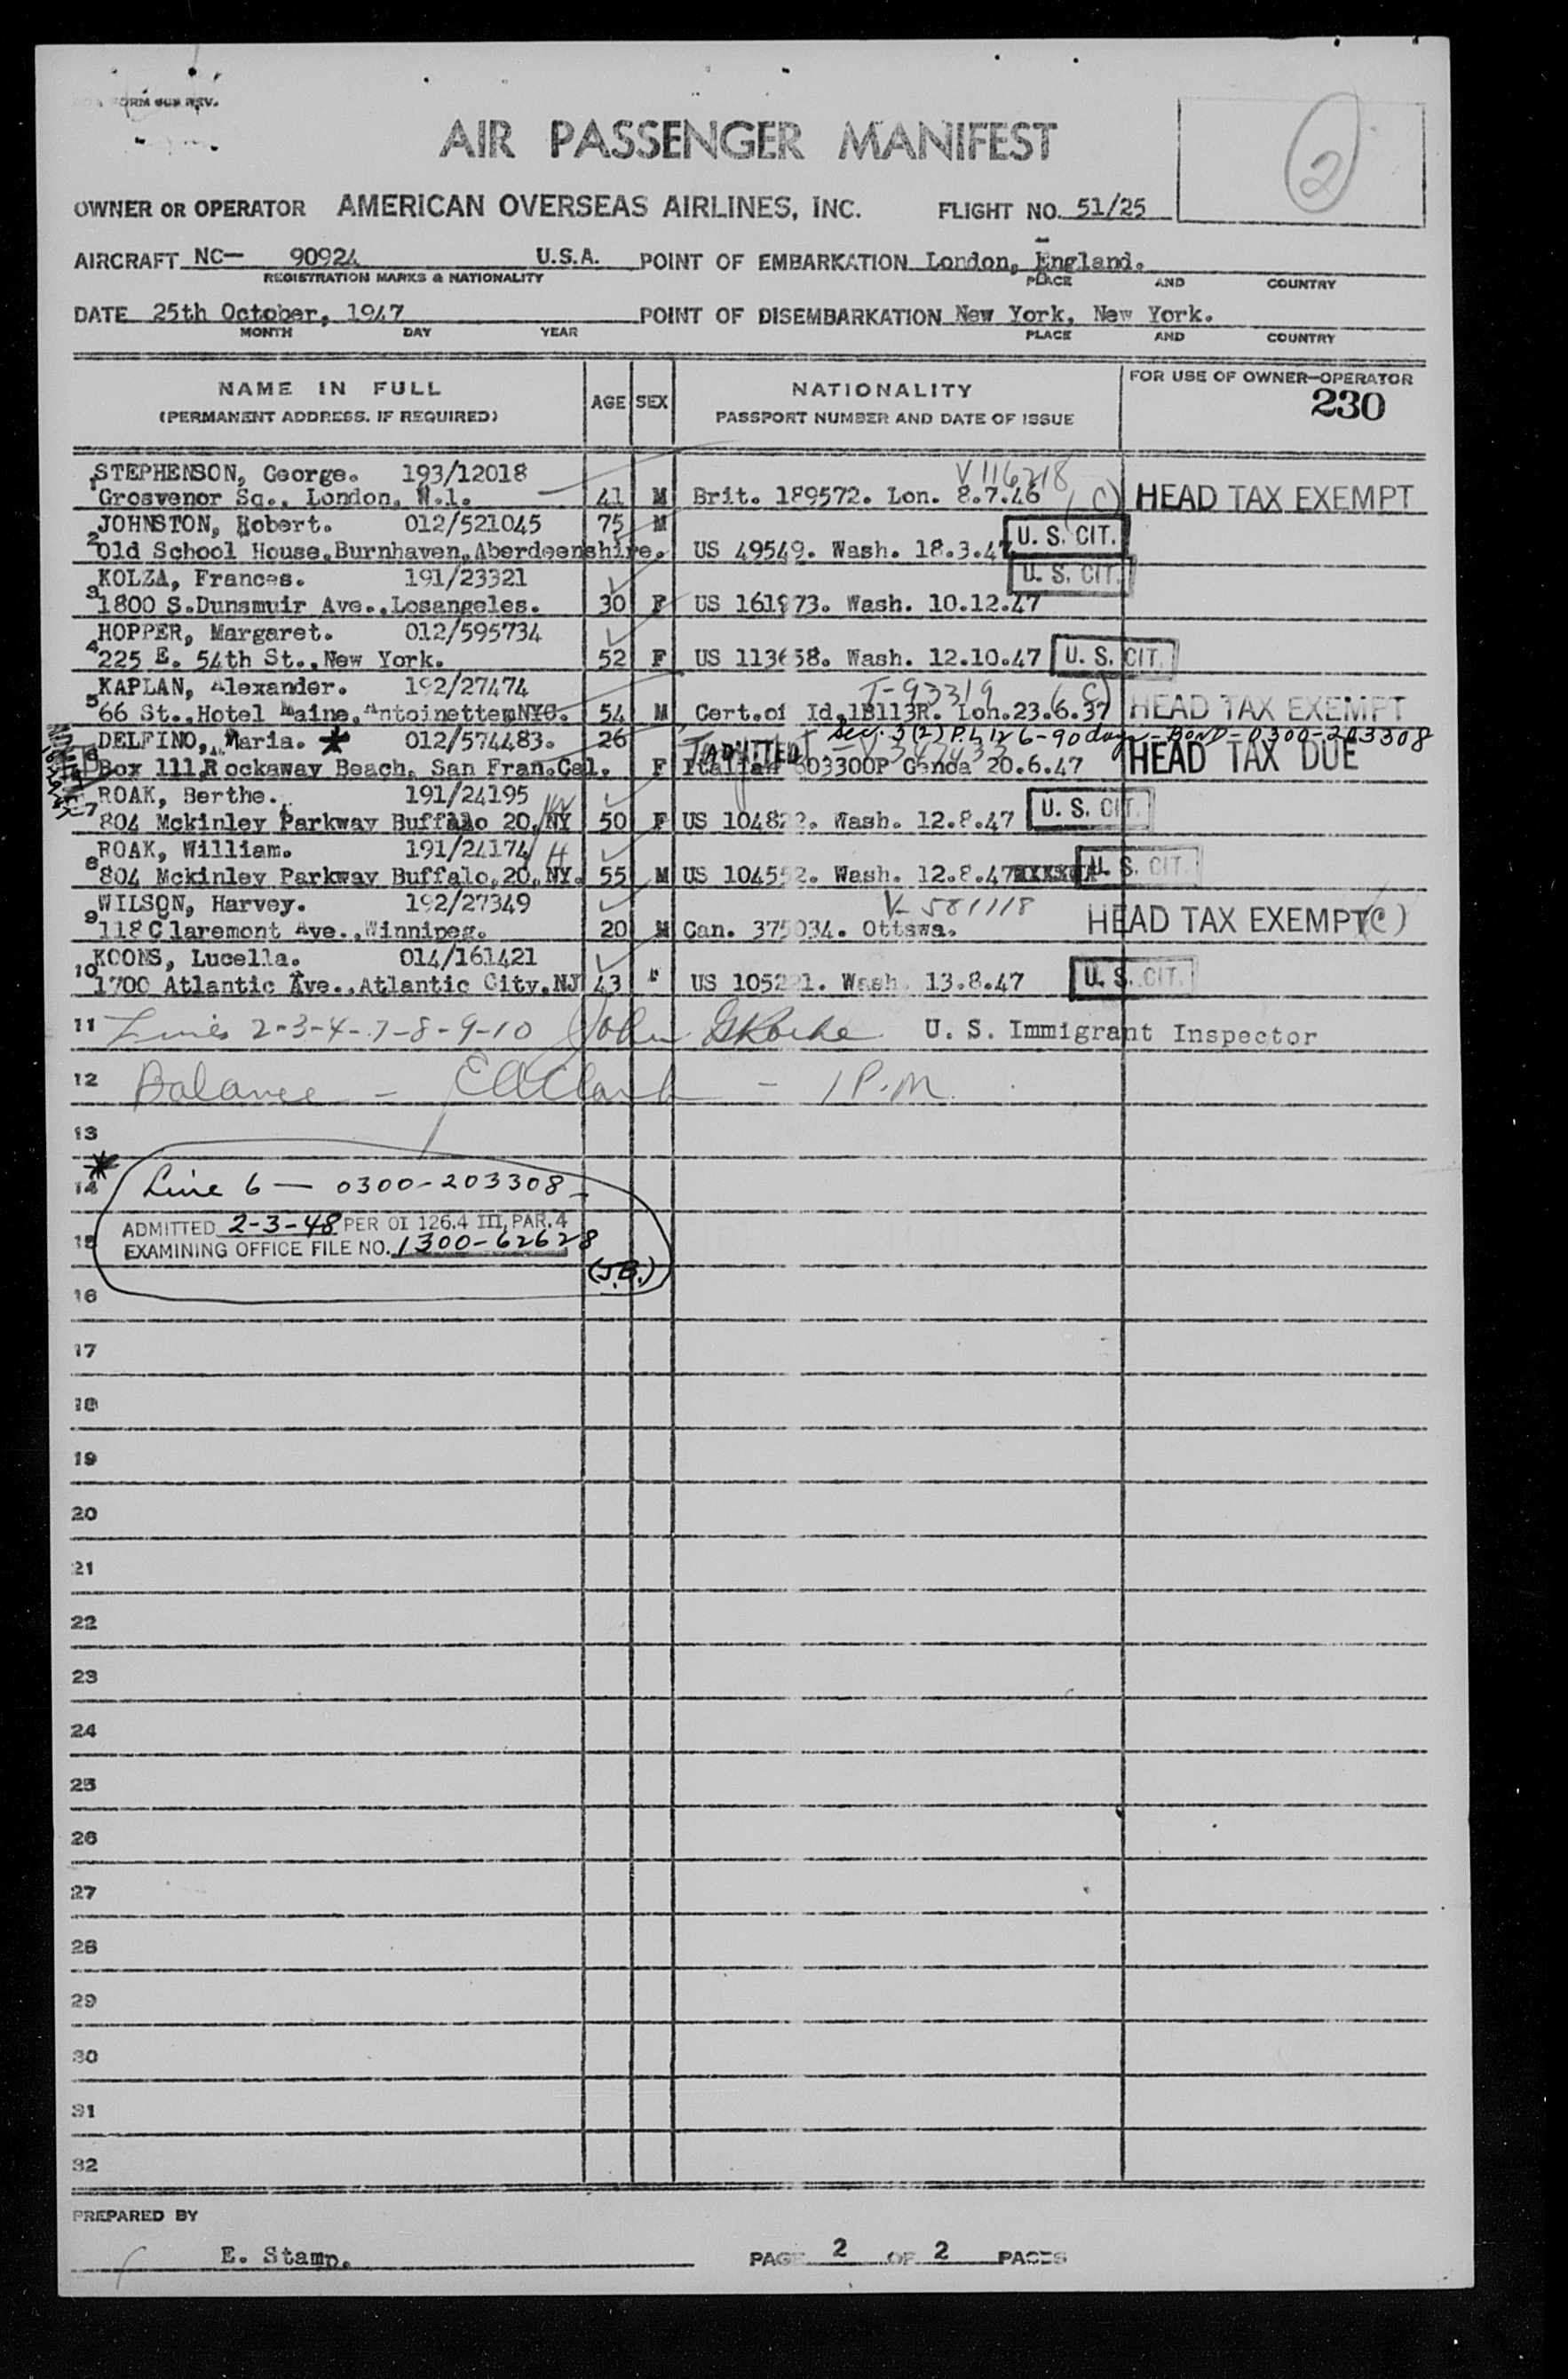 FORM REV.
AIR PASSENGER MANIFEST
2
OWNER OR OPERATOR AMERICAN OVERSEAS AIRLINES, INC. FLIGHT NO. 51/25
AIRCRAFT NC— 90924 U.S.A. POINT OF EMBARKATION London, England.
REGISTRATION MARKS & NATIONALITY PLACE AND COUNTRY
DATE 25th October, 1947 POINT OF DISEMBARKATION New York, New York.
MONTH DAY YEAR PLACE AND COUNTRY
NAME IN FULL AGE SEX NATIONALITY FOR USE OF OWNER-OPERATOR
(PERMANENT ADDRESS, IF REQUIRED) PASSPORT NUMBER AND DATE OF ISSUE 230
1 STEPHENSON, George. 193/12018 V 116218
Grosvenor Sq., London, W.1. 41 M Brit. 189572. Lon. 8.7.46 (C) HEAD TAX EXEMPT
2 JOHNSTON, Robert. 012/521045 75 M
Old School House,Burnhaven,Aberdeenshire. US 49549. Wash. 18.3.47 U. S. CIT.
3 KOLZA, Frances. 191/23321 U. S. CIT.
1800 S.Dunsmuir Ave.,Losangeles. 30 F US 161973. Wash. 10.12.47
4 HOPPER, Margaret. 012/595734
225 E. 54th St.,New York. 52 F US 113658. Wash. 12.10.47 U. S. CIT.
5 KAPLAN, Alexander. 192/27474 T-93319 (C)
66 St.,Hotel Maine,Antoinettem NYC. 54 M Cert.of Id.1B113R. Lon.23.6.37 HEAD TAX EXEMPT
6 DELFINO, Maria. * 012/574483. 26 Sec. 3(2) P.L. 126-90 days - BOND - 0300-203308
Box 111,Rockaway Beach, San Fran.Cal. F ADMITTED Italian 603300P Genoa 20.6.47 HEAD TAX DUE
7 ROAK, Berthe. 191/24195
804 Mckinley Parkway Buffalo 20, NY 50 F US 104822. Wash. 12.8.47 U. S. CIT.
8 ROAK, William. 191/24174
804 Mckinley Parkway Buffalo,20,NY. 55 M US 104552. Wash. 12.8.47 U. S. CIT.
9 WILSON, Harvey. 192/27349 V-581118
118 Claremont Ave.,Winnipeg. 20 M Can. 375034. Ottawa. HEAD TAX EXEMPT (C)
10 KOONS, Lucella. 014/161421
1700 Atlantic Ave.,Atlantic City,NJ 43 " US 105221. Wash. 13.8.47 U. S. CIT.
11 Lines 2-3-4-7-8-9-10 John U. S. Immigrant Inspector
12 Balance - E A Clark - 1 P.M.
13
*
14 Line 6 — 0300-203308-
ADMITTED 2-3-48 PER OI 126.4 III, PAR.4
15 EXAMINING OFFICE FILE NO. 1300-62628
(J.B.)
16
17
18
19
20
21
22
23
24
25
26
27
28
29
30
31
32
PREPARED BY
E. Stamp. PAGE 2 OF 2 PAGES